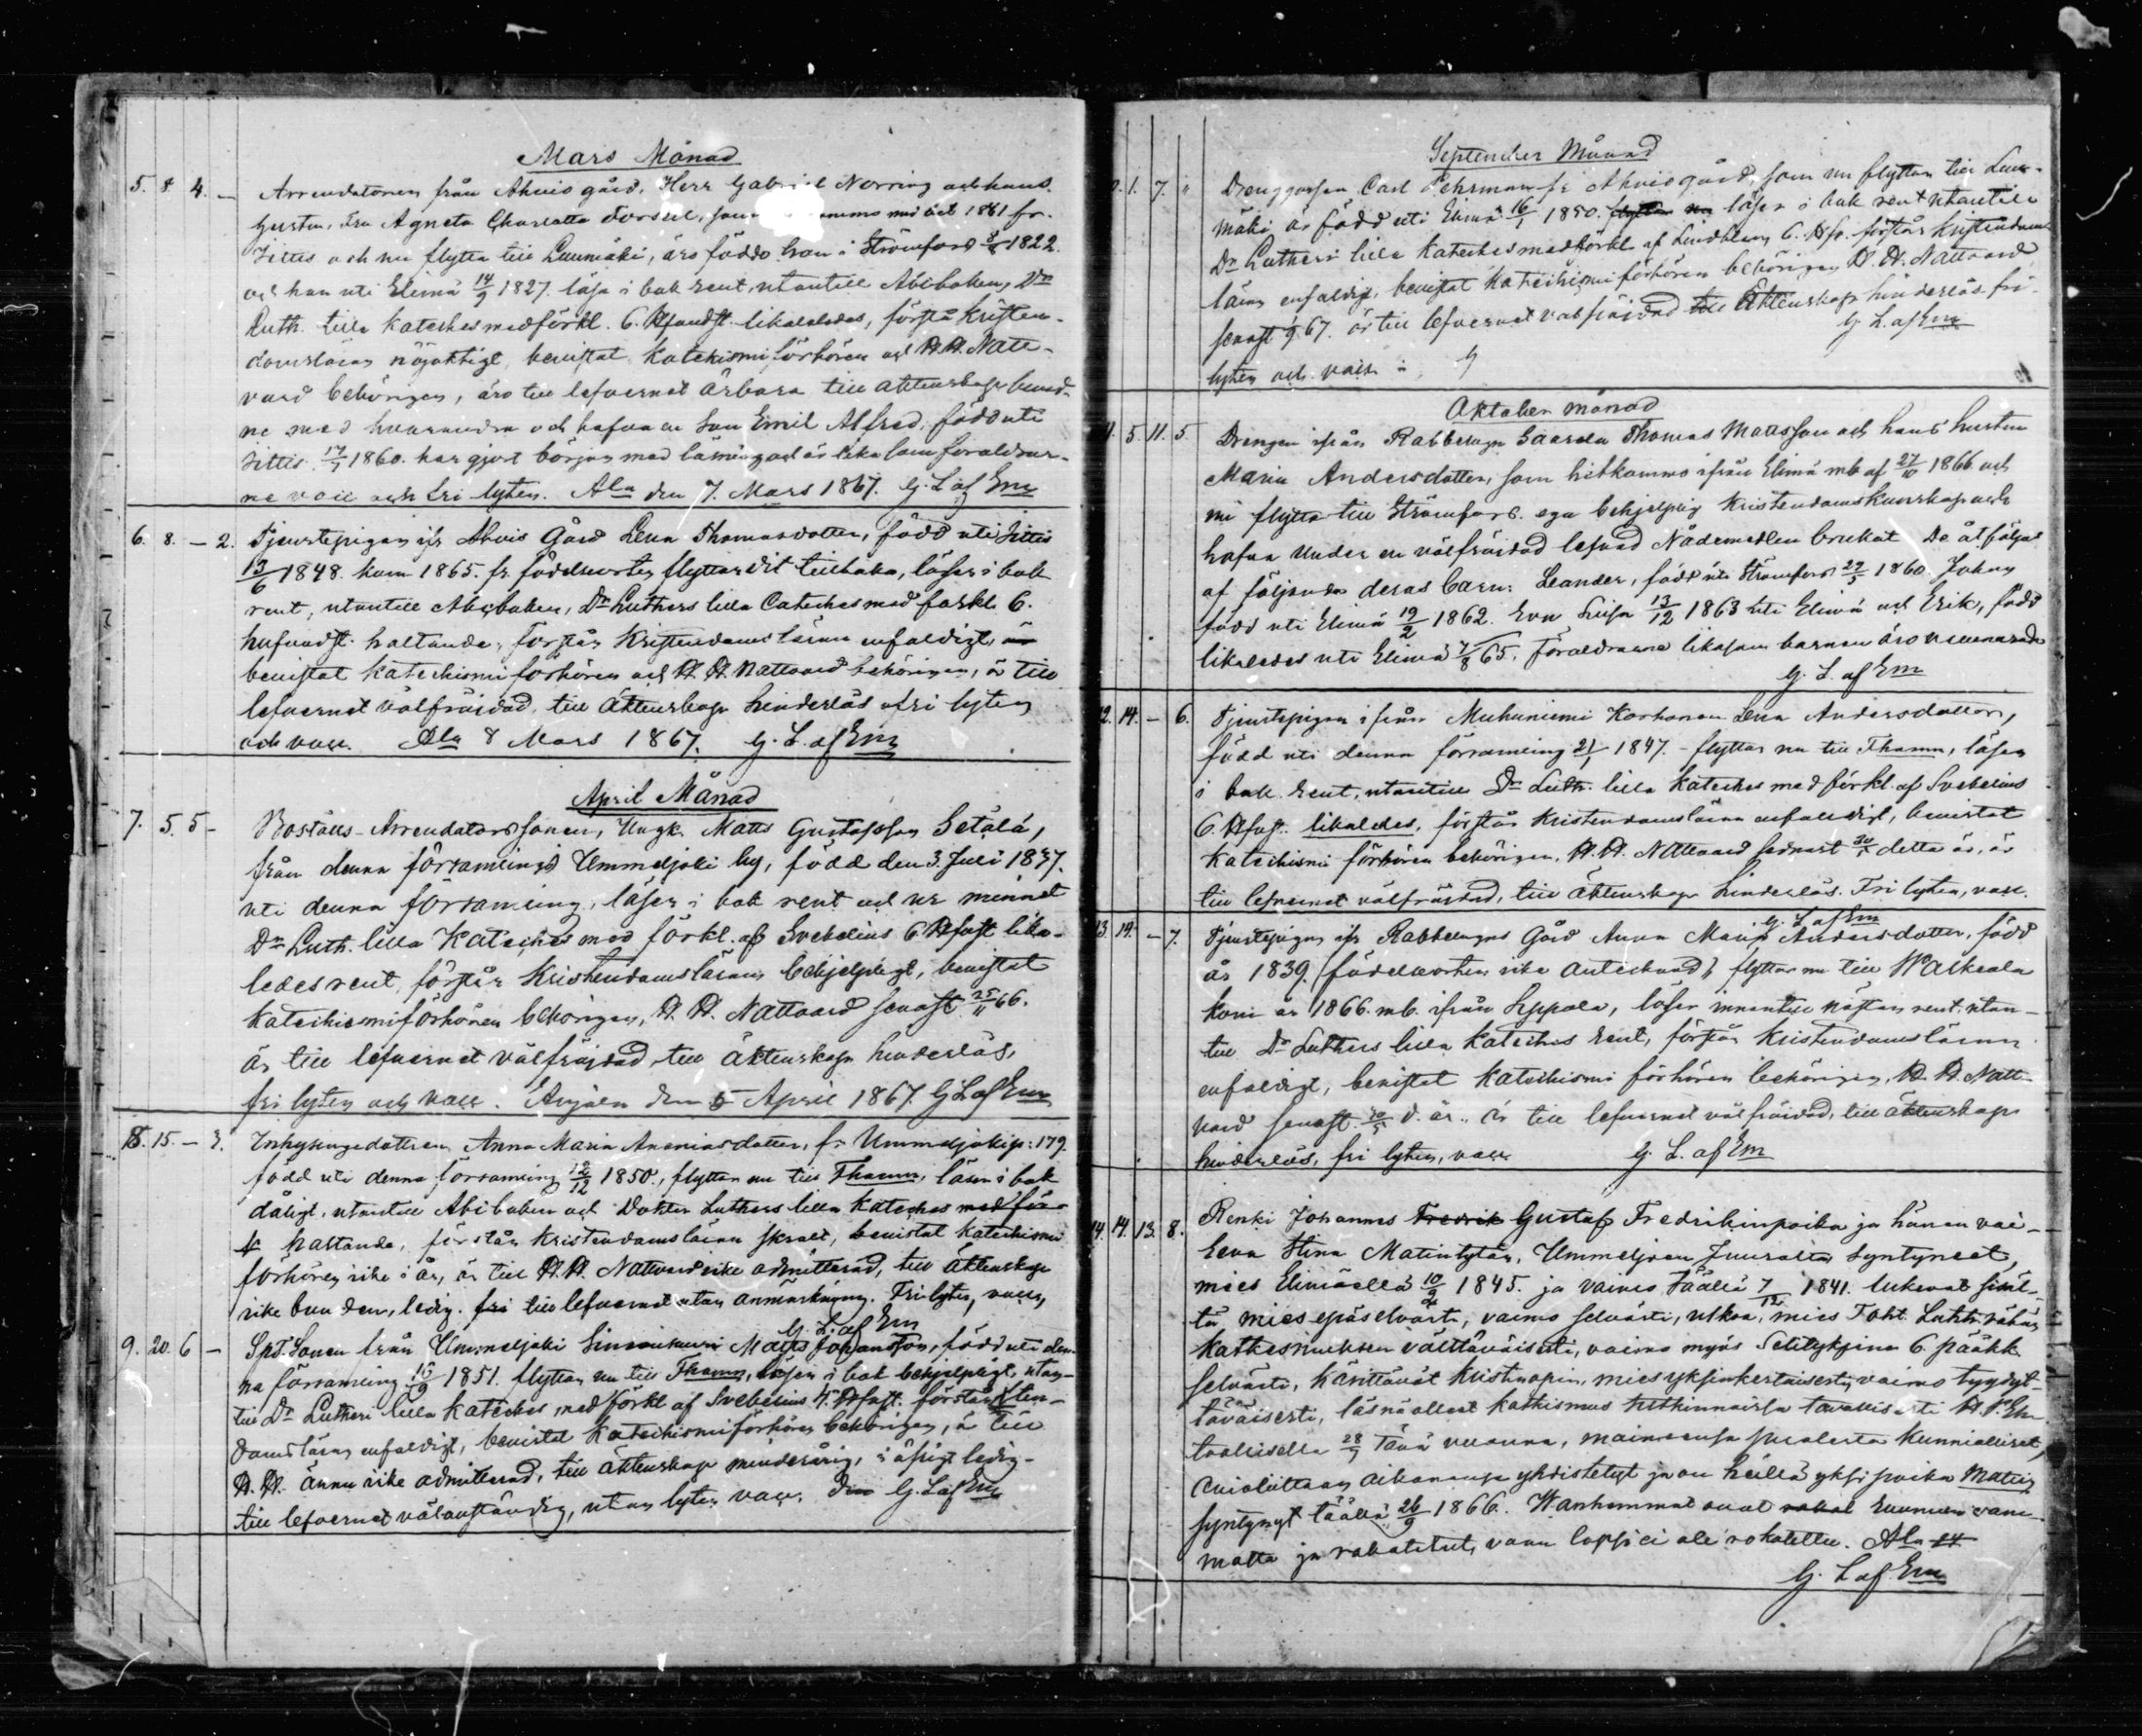 Mars Månad
5. 8. 4. - Arrendatorn från Ahvis gård, Herr Gabriel Norring och hans
hustru, Fru Agneta Charlotta Forssel, som kommo med 1861 fr.
Jittis och nu flytta till Luumäki, äro födde hon i Strömfors 1822.
och han uti Elimä 14/9 1827. läsa i bok rent, utantill Abcboken, Dr
Luth. lilla Kateches med förkl. 6. Hufvudst. likaledes, förstå kristen-
domsläran nöjaktigt, bevistat Katechismiförhören och H. H. Natt-
vard behörigen, äro till lefvernet ärbara till äktenskap bund-
ne med hvarandra och hafva en Son Emil Alfred, född uti
Jittis 17/1 1860. har gjort början med läsning och är lika som föraldrar-
ne vacc och fri lyten. Ala den 7. Mars 1867. G. L af Em
6. 8. - 2. Tjenstepigan ifr Ahvis Gård Lena Thomasdotter, född uti Jittis
13/6 1848. kom 1865. fr. födelseorten flyttar dit tillbaka, läser i bok
rent, utantill Abcboken, Dr Luthers lilla Cateches med förkl. 6.
hufvudst. haltande, förstår Kristendomsläran enfaldigt,
bevistat Katechismiförhören och H. H. Nattvard behörigen, är till
lefvernet välfräjdad, till Äktenskap hinderlös, fri lyten
och vacc. Ala 8 Mars 1867. G. L. af Em
April Månad
7. 5. 5 - Boställs-Arrendatorssonen, Ungk. Matts Gustafsson Setälä,
från denna församlings Ummeljoki by, född den 3. Juli 1837.
uti denna församling, läser i bok rent och ur minnet
Dr Luth. lilla Kateches med förkl. af Svebelius 6 Hfvst lika-
ledes rent, förstår Kristendomsläran behjelpligt, bevistat
Katechismiförhören behörigen, H. H. Nattvard senast 25/11 66.
är till lefvernet välfräjdad, till Äktenskap hinderlös,
fri lyten och vacc. Anjala den 5 April 1867. G L af Em
8. 15. - 3. Inhysingedottren Anna Maria Ananiasdotter, fr Ummeljoki p: 179.
född uti denna församling 12/12 1850, flyttar nu till Thamm, läser i bok
dåligt, utantill Abcboken och Doktor Luthers lilla Kateches med för-
haltande, förstår Kristendomsläran skralt, bevistat Katechismi
förhören icke i år, är till H. H. Nattvard icke admitterad, till Äktenskap
icke bunden, ledig. fri till lefvernet utan anmärkning. Fri lyten, vacc,
G. L. af Em
9. 20. 6 - Spt. Sonen från Ummeljoki Matts Johansson, född uti den-
na församling 16/9 1851. flyttar nu till Thamm, läser i bok behjelpligt, utan-
till Dr Lutheri lilla Kateches, med förkl af Svebelius 4. Hfvst. förstår Kristen-
domsläran enfaldigt, bevistat Katechismiförhören behörigen, är till
H. H. ännu icke admitterad, till äktenskap minderårig, i öfrigt ledig-
till lefvernet välanständig, utan lyten vacc. G. L af Em
September Månad
1. 7. Drenggossen Carl Fehrman fr Ahvis gård, som nu flyttar till Luu-
mäki är född uti Elimä 16/1 1850. läser i bok rent utantill
Dr Lutheri lilla Kateches med förkl af Lindblom 6. Hfv. förstår Kristendoms
läran enfaldigt, bevistat Katechismiförhören behörigen H. H. Nattvard
senast 67. är till lefvernet välfräjdad till Äktenskap hinderlös fri
lyten och vacc.
G. L. af Em
Oktober månad
11. 5. 11. 5. Drengen ifrån Rabbelugn Saarela Thomas Mattsson och hans hustru
Maria Andersdotter, som hitkommo ifrån Elimä mb af 27/10 1866 och
nu flytta till Strömfors. ega behjelplig Kristendomskunskap och
hafva under en välfräjdad lefnad Nådemedlen brukat De åtföljas
af följande deras barn: Leander, född uti Strömfors 27/5 1860. Johan
född uti Elimä 19/2 1862. Eva Lisa 13/12 1863 uti Elimä och Erik, född
likaledes uti Elimä 7/8 65. Föraldrarne likasom barnen äro vaccinerade
G. L. af Em
12. 14. - 6. Tjenstepigan ifrån Muhuniemi Korhonen Lena Andersdotter,
född uti denna församling 21/1 1847. - flyttar nu till Thamm, läser
i bok rent, utantill Dr Luth. lilla Kateches med förkl. af Svebelius
6. Hfvst. likaledes, förstår Kristendomsläran enfaldigt, bevistat
Katechismi förhören behörigen, H. H. Nattvard sednast 30/5 detta år, är
till lefvernet välfräjdad, till äktenskap hinderlös. Fri lyten, vacc.
G. L af Em
13. 19. - 7. Tjenstepigan ifr Rabbelugns Gård Anna Maria Andersdotter, född
år 1839. (födelseorten icke antecknad), flyttar nu till Walkeala
kom år 1866. mb. ifrån Sippola, läser innantill nästan rent, utan-
till Dr Luthers lilla Kateches rent, förstår Kristendomsläran
enfaldigt, bevistat Katechismi förhören behörigen, H. H. Natt-
vard senast 30/5 d. år., är till lefvernet välfräjdad, till äktenskap
hinderlös, fri lyten, vacc G. L. af Em
14. 14. 13. 8. Renki Johannes Fredrik Gustaf Fredrikinpoika ja hänen vai-
Eeva Stina Matintytär, Ummeljoen Junralta Syntyneet,
mies Elimäellä 10/2 1845. ja vaimo täällä 7/12 1841. lukevat sisäl-
tä, mies epäselvästi, vaimo selvästi, ulkoa, mies Toht. Luth. vähän
katkesmuksen välttäväisesti, vaimo myös Selityksine 6. pääkk.
selvästi, käsittävät kristinopin, mies yksinkertaisesti vaimo tyydyt-
täväisesti, läsnä olleet katkismus tutkinnoissa tavallisesti H. P. Eh-
toollisella 28/7 tänä vuonna, maineensa puolesta kunnialliset,
Avioliittoon aikanansa yhdistetyt ja on heillä yksi poika Matti,
syntynyt täällä 26/9 1866. Wanhemmat ovat ruumiin vam-
matta ja rokotetut, vaan lapsi ei ole rokotettu. Ala 14
G. L af Em